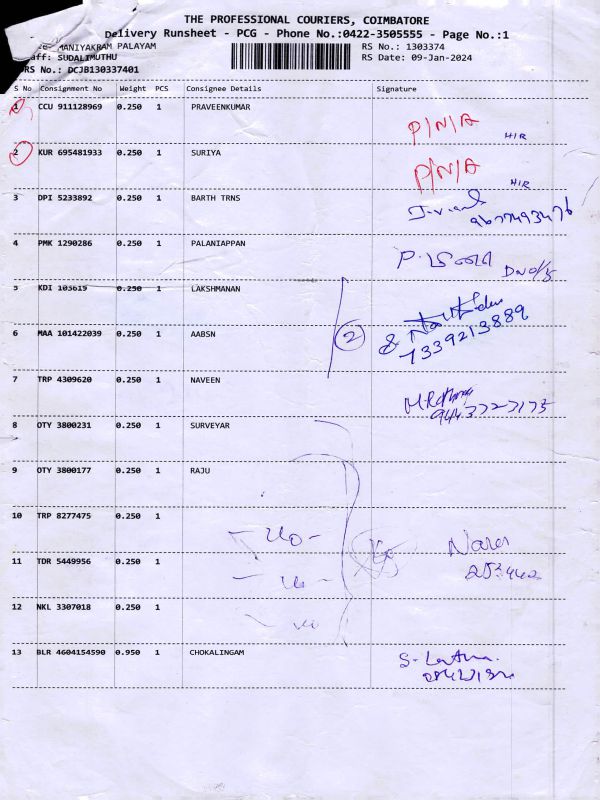 THE PROFESSIONAL COURIERS, COIMBATORE
Delivery Runsheet - PCG - Phone No.:0422-3505555 - Page No.:1
MANIYAKRAM PALAYAM
RS No.: 1303374
SUDALIMUTHU
RS Date: 09-Jan-2024
DRS No.: DCJB130337401
S No Consignment No Weight PCS Consignee Details Signature
1 CCU 911128969 0.250 1 PRAVEENKUMAR P/N/A H/R
2 KUR 695481933 0.250 1 SURIYA P/N/A H/R
3 DPI 5233892 0.250 1 BARTH TRNS
4 PMK 1290286 0.250 1 PALANIAPPAN
5 KDI 105619 0.250 1 LAKSHMANAN
6 MAA 101422039 0.250 1 AABSN 2
7339213889
7 TRP 4309620 0.250 1 NAVEEN
8 OTY 3800231 0.250 1 SURVEYAR
9 OTY 3800177 0.250 1 RAJU
10 TRP 8277475 0.250 1
11 TDR 5449956 0.250 1
12 NKL 3307018 0.250 1
13 BLR 4604154590 0.950 1 CHOKALINGAM